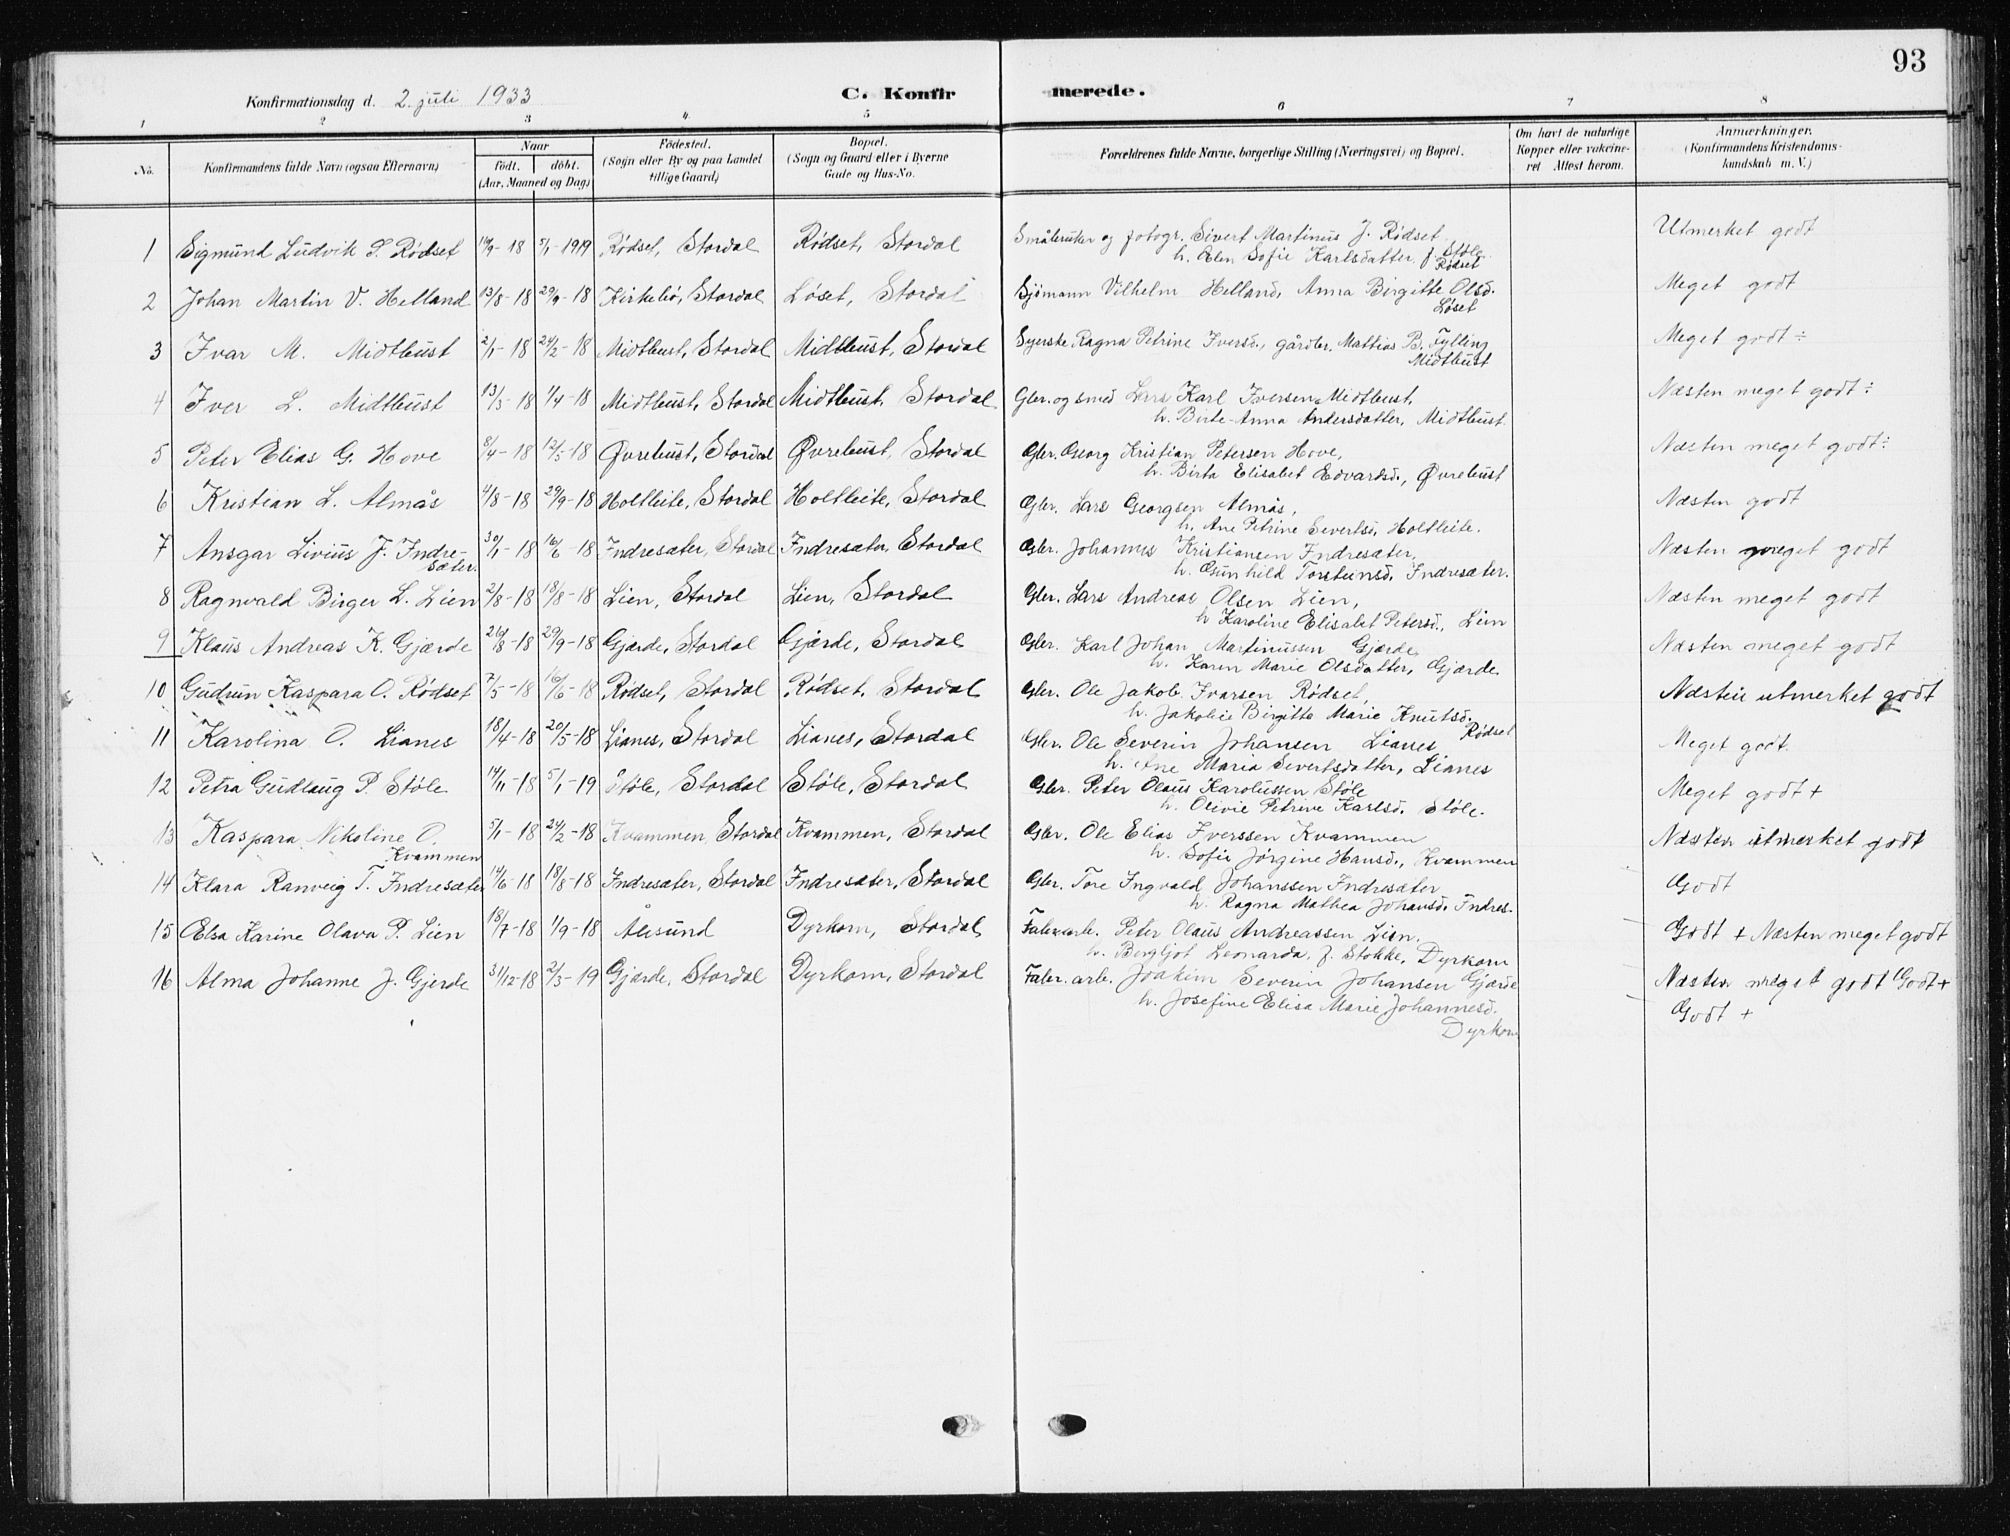 93
Konfirmationsdag d. 2. juli 1933
C. Konfirmerede.
1 2 3 4 5 6 7 8
No.
Konfirmandens fulde Navn (ogsaa Efternavn)
Naar
født. døbt.
(Aar, Maaned og Dag)
Fødested.
(Sogn eller By og paa Landet
tillige Gaard)
Bopæl.
(Sogn og Gaard eller i Byerne
Gade og Hus-No.
Forældrenes fulde Navne, borgerlige Stilling (Næringsvei) og Bopæl.
Om havt de naturlige
Kopper eller vakcine-
ret Attest herom.
Anmærkninger.
(Konfirmandens Kristendoms-
kundskab m. V.)
1 Sigmund Ludvik S. Rødset 16/9-18 5/1-1919 Rødset, Stordal Rødset, Stordal Småbruker og fotogr. Sivert Martinus J. Rødset Utmerket godt
h. Elen Sofie Karlsdatter f. Støle
Rødset
2 Johan Martin V. Helland 13/8-18 29/9-18 Kirkebø, Stordal Løset, Stordal Sjömann Vilhelm Helland, Anna Birgitte Olsd. Meget godt
Løset
3 Ivar M. Midtbust 2/1-18 24/2-18 Midtbust, Stordal Midtbust, Stordal Syerske Ragna Petrine Iversd., gårdbr. Mattias B. Fylling Meget godt ÷
Midtbust
4 Iver L. Midtbust 13/3-18 1/4-18 Midtbust, Stordal Midtbust, Stordal Gbr. og smed Lars Karl Iversen Midtbust, Næsten meget godt ÷
h. Birte-Anna Andersdatter, Midtbust
5 Peter Elias G. Hove 8/4-18 12/5-18 Øvrebust, Stordal Øvrebust, Stordal Gbr. Georg Kristian Petersen Hove, Næsten meget godt ÷
h. Birta Elisabet Edvardsd., Øvrebust
6 Kristian L. Almås 4/8-18 29/9-18 Holtleite, Stordal Holtleite, Stordal Gbr. Lars Georgsen Almås, Næsten godt
h. Ane Petrine Sivertsd. Holtleite.
7 Ansgar Livius J. Indre- 30/1-18 16/6-18 Indresæter, Stordal Indresæter, Stordal Gbr. Johannes Kristiansen Indresæter, Næsten meget godt
sæter. h. Gunhild Torsteinsd. Indresæter.
8 Ragnvald Birger L. Lien 2/8-18 18/8-18 Lien, Stordal Lien, Stordal Gbr. Lars Andreas Olsen Lien, Næsten meget godt
h. Karoline Elisabet Petersd., Lien
9 Klaus Andreas K. Gjærde 26/8-18 29/9-18 Gjærde, Stordal Gjærde, Stordal Gbr. Karl Johan Martinussen Gjærde Næsten meget godt
h. Karen Marie Olsdatter, Gjærde
10 Gudrun Kaspara O. Rødset 7/5-18 16/6-18 Rødset, Stordal Rødset, Stordal Gbr. Ole Jakob Ivarsen Rødset, Næsten utmerket godt
h. Jakobie Birgitte Marie Knutsd.
Rødset
11 Karolina O. Lianes 18/4-18 20/5-18 Lianes, Stordal Lianes, Stordal Gbr. Ole Severin Johansen Lianes Meget godt.
h. Ane Maria Sivertsdatter, Lianes
12 Petra Gudlaug P. Støle 14/11-18 5/1-19 Støle, Stordal Støle, Stordal Gbr. Peter Olaus Karolussen Støle Meget godt +
h. Olivie Petrine Karlsd. Støle.
13 Kaspara Nikoline O. 5/1-18 24/2-18 Kvammen, Stordal Kvammen, Stordal Gbr. Ole Elias Iverssen Kvammen Næsten utmerket godt
Kvammen h. Sofie Jørgine Hansd., Kvammen
14 Klara Ranveig T. Indresæter 14/6-18 18/8-18 Indresæter, Stordal Indresæter, Stordal Gbr. Tore Ingvald Johanssen Indresæter Godt
h. Ragna Mathea Johansd. Indres.
15 Elsa Karine Olava P. Lien 18/7-18 1/9-18 Ålesund Dyrkorn, Stordal Peter Olaus Andreassen Lien. Godt + Næsten meget godt
h. Bergljot Leonarda, f. Stokke, Dyrkorn
16 Alma Johanne J. Gjerde 31/12-18 2/3-19 Gjærde, Stordal Dyrkorn, Stordal Fabr. arb. Joakim Severin Johansen Gjærde Næsten meget godt Godt +
h. Josefine Elisa Marie Johannesd. Godt +
Dyrkorn